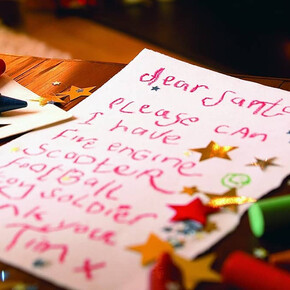 Dear Santa
PLEASE CAN
I have
Fire engine
Scooter
FooTBaLL
Toy SoLdier
ank you
Tim x